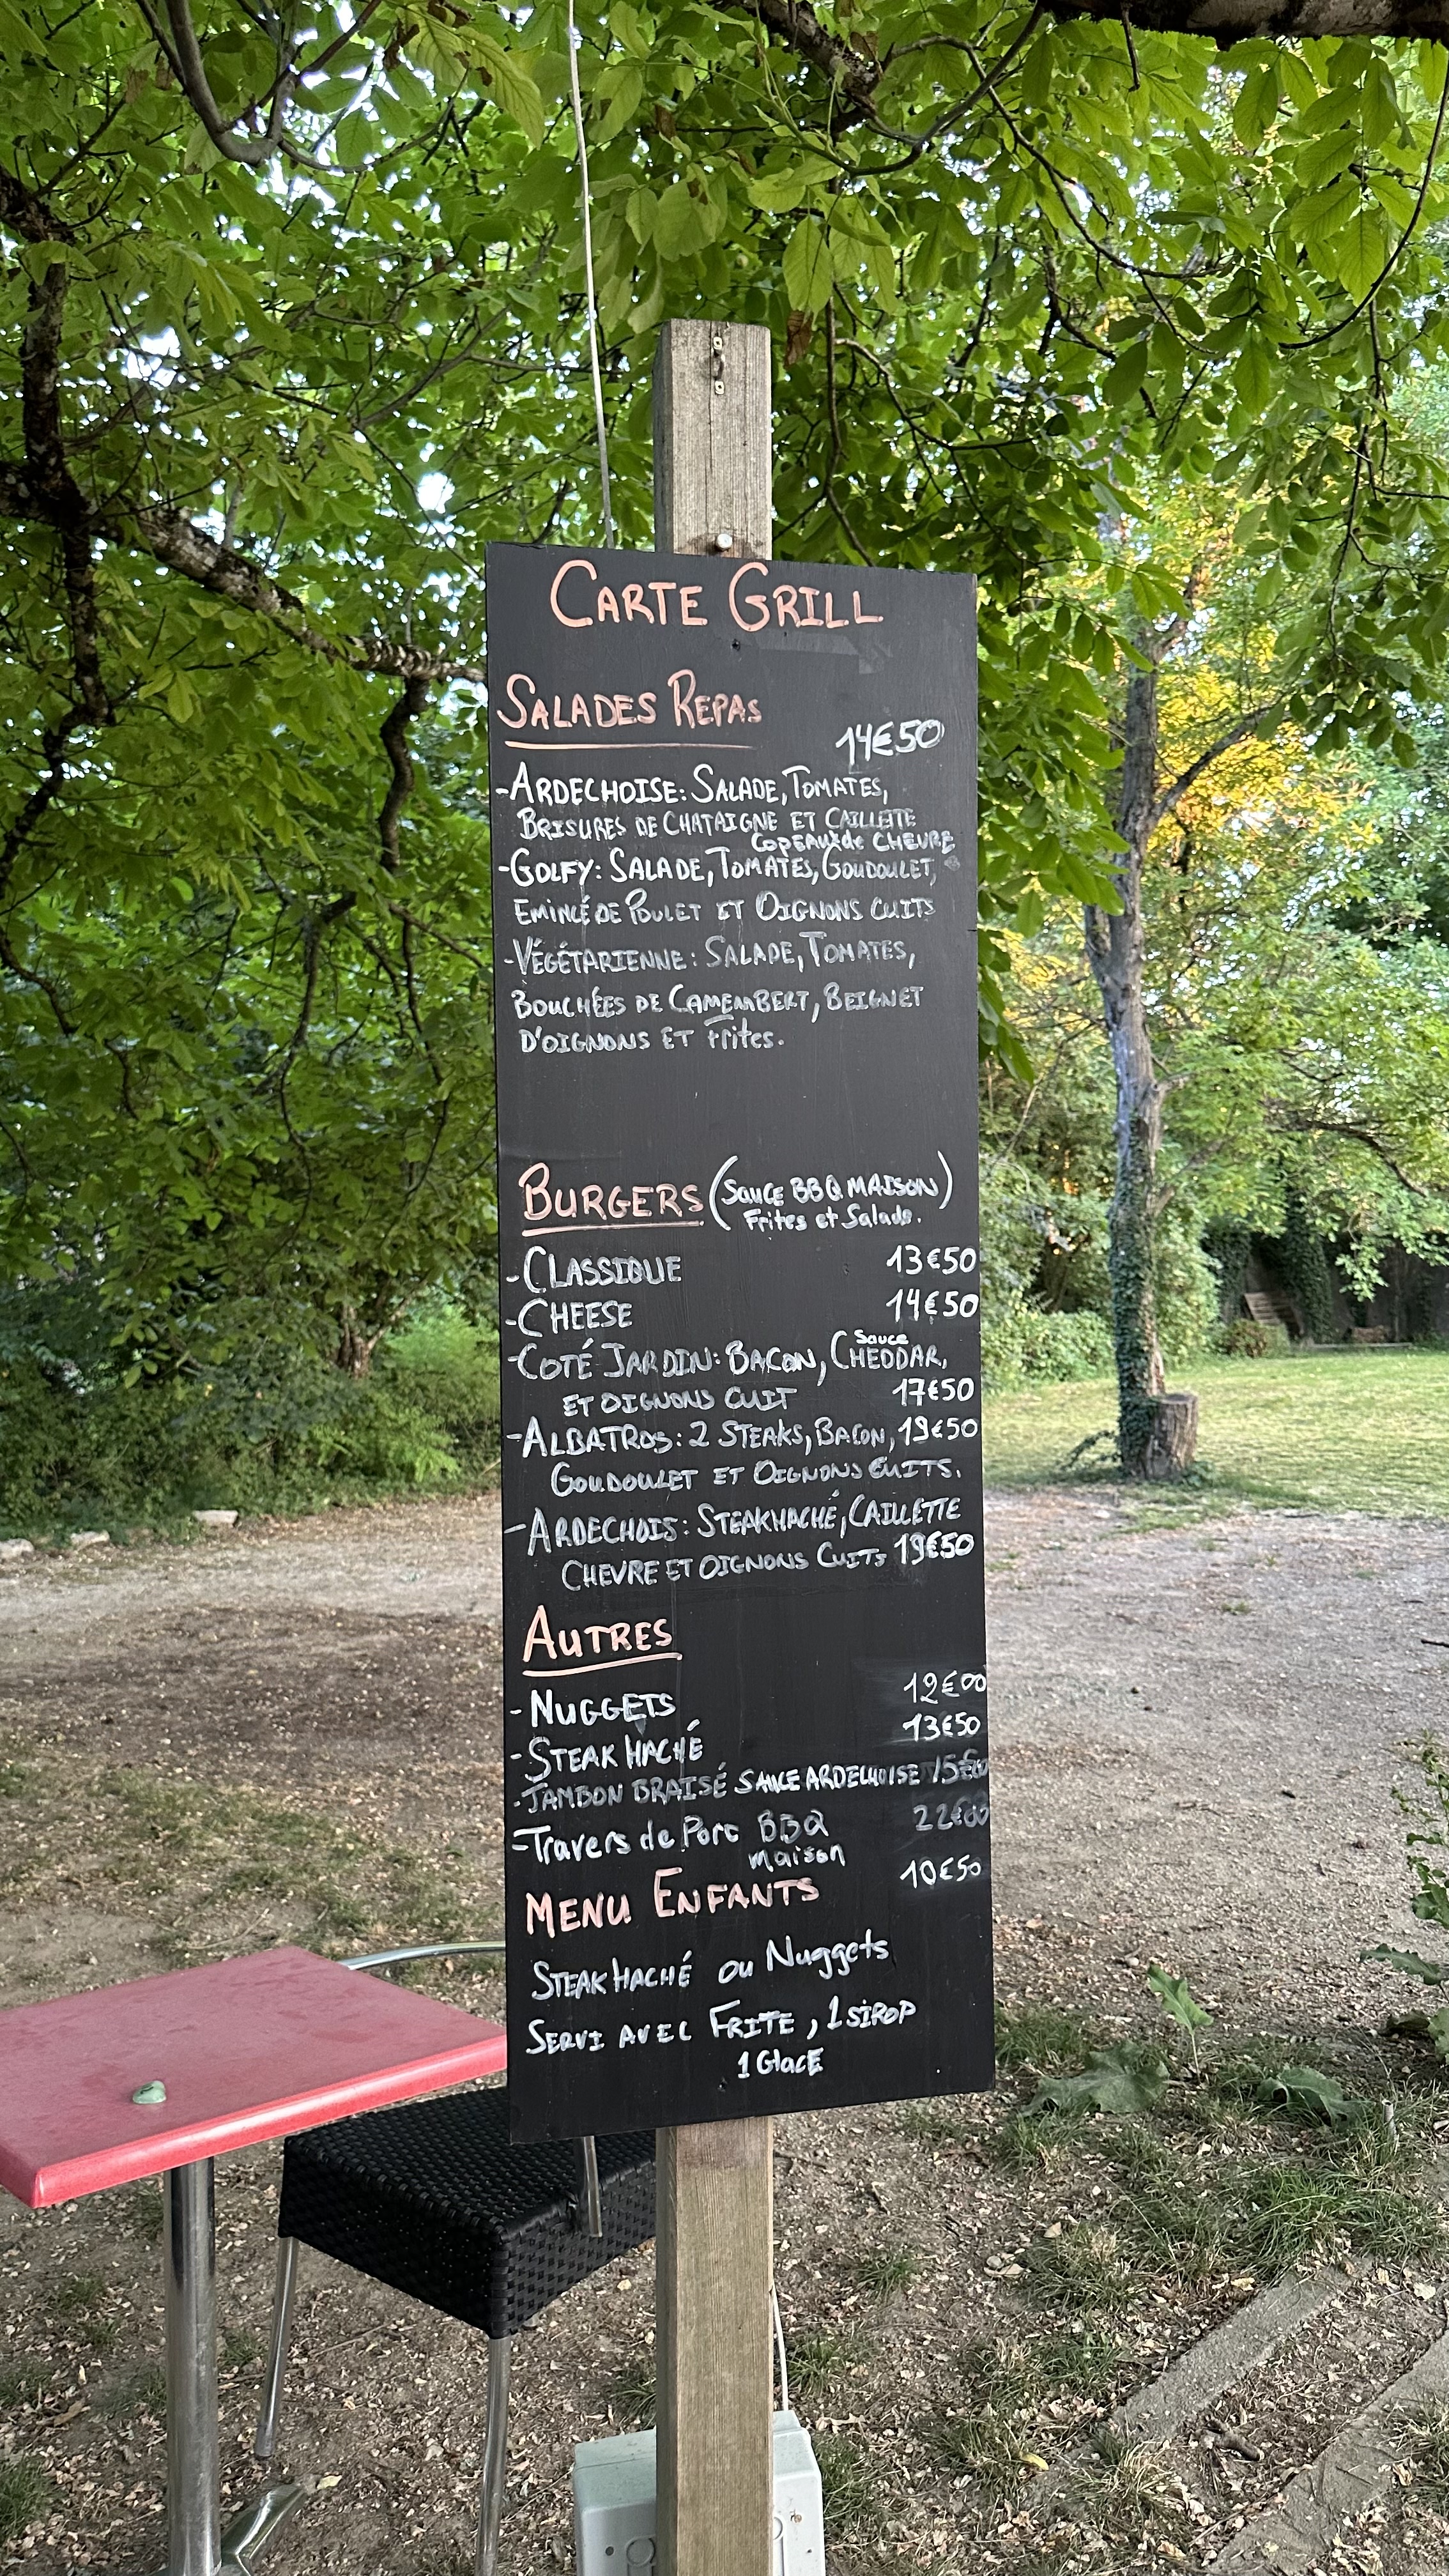 CARTE GRILL
SALADES REPAS
14€50
-ARDECHOISE: SALADE, TOMATES,
BRISURES DE CHATAIGNE ET CAILLETTE
COPEAUX de CHEVRE
-GOLFY: SALADE, TOMATES, GOUDOULET,
EMINCÉ DE POULET ET OIGNONS CUITS
-VÉGÉTARIENNE: SALADE, TOMATES,
BOUCHÉES DE CAMEMBERT, BEIGNET
D'OIGNONS ET Frites.
BURGERS (SAUCE BBQ MAISON)
Frites et Salade.
-CLASSIQUE 13€50
-CHEESE 14€50
Sauce
-COTÉ JARDIN: BACON, CHEDDAR,
ET OIGNONS CUIT 17€50
-ALBATROS: 2 STEAKS, BACON, 19€50
GOUDOULET ET OIGNONS CUITS.
-ARDECHOIS: STEAK HACHÉ, CAILLETTE
CHEVRE ET OIGNONS CUITS 19€50
AUTRES
-NUGGETS 12€00
-STEAK HACHÉ 13€50
-JAMBON BRAISÉ SAUCE ARDECHOISE
-Travers de Porc BBQ 22€00
maison
MENU ENFANTS 10€50
STEAK HACHÉ ou Nuggets
SERVI AVEC FRITE, 1 SIROP
1 GlacE